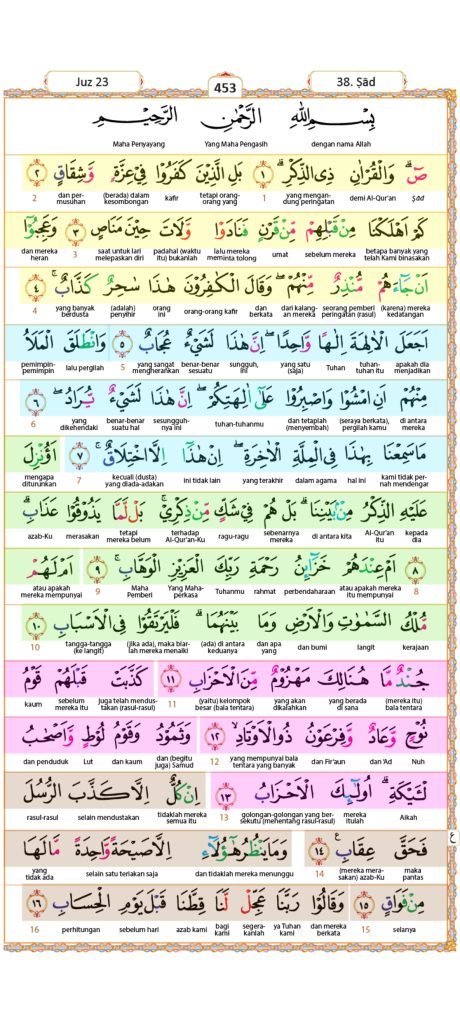 Juz 23 453 38. Ṣād
بِسْمِ اللّٰهِ الرَّحْمٰنِ الرَّحِيْمِ
dengan nama Allah Yang Maha Pengasih Maha Penyayang
صۤ ۗ وَالْقُرْاٰنِ ذِى الذِّكْرِۗ ١ بَلِ الَّذِيْنَ كَفَرُوْا فِيْ عِزَّةٍ وَّشِقَاقٍ ٢
Ṣād demi Al-Qur'an yang mengandung peringatan 1 tetapi orang-orang yang kafir (berada) dalam kesombongan dan permusuhan 2
كَمْ اَهْلَكْنَا مِنْ قَبْلِهِمْ مِّنْ قَرْنٍ فَنَادَوْا وَّلَاتَ حِيْنَ مَنَاصٍ ٣ وَعَجِبُوْٓا
betapa banyak yang telah Kami binasakan sebelum mereka umat lalu mereka meminta tolong padahal (waktu itu) bukanlah saat untuk lari melepaskan diri 3 dan mereka heran
اَنْ جَاۤءَهُمْ مُّنْذِرٌ مِّنْهُمْ ۖوَقَالَ الْكٰفِرُوْنَ هٰذَا سٰحِرٌ كَذَّابٌۚ ٤
(karena) mereka kedatangan seorang pemberi peringatan (rasul) dari kalangan mereka dan berkata orang-orang kafir orang ini (adalah) penyihir yang banyak berdusta 4
اَجَعَلَ الْاٰلِهَةَ اِلٰهًا وَّاحِدًا ۖاِنَّ هٰذَا لَشَيْءٌ عُجَابٌ ٥ وَانْطَلَقَ الْمَلَاُ
apakah dia menjadikan tuhan-tuhan itu Tuhan yang satu (saja) sungguh, ini benar-benar sesuatu yang sangat mengherankan 5 lalu pergilah pemimpin-pemimpin
مِنْهُمْ اَنِ امْشُوْا وَاصْبِرُوْا عَلٰٓى اٰلِهَتِكُمْ ۖاِنَّ هٰذَا لَشَيْءٌ يُّرَادُ ۖ ٦
di antara mereka (seraya berkata), pergilah kamu dan tetaplah (menyembah) tuhan-tuhanmu sesungguhnya ini benar-benar suatu hal yang dikehendaki 6
مَا سَمِعْنَا بِهٰذَا فِى الْمِلَّةِ الْاٰخِرَةِ ۖاِنْ هٰذَآ اِلَّا اخْتِلَاقٌۚ ٧ اَؤُنْزِلَ
kami tidak pernah mendengar hal ini dalam agama yang terakhir ini tidak lain kecuali (dusta) yang diada-adakan 7 mengapa diturunkan
عَلَيْهِ الذِّكْرُ مِنْۢ بَيْنِنَا ۗبَلْ هُمْ فِيْ شَكٍّ مِّنْ ذِكْرِيْۚ بَلْ لَّمَّا يَذُوْقُوْا عَذَابِۗ
kepada dia Al-Qur'an itu di antara kita sebenarnya mereka ragu-ragu terhadap Al-Qur'an-Ku tetapi mereka belum merasakan azab-Ku
٨ اَمْ عِنْدَهُمْ خَزَاۤىِٕنُ رَحْمَةِ رَبِّكَ الْعَزِيْزِ الْوَهَّابِۚ ٩ اَمْ لَهُمْ
8 atau apakah mereka itu mempunyai perbendaharaan rahmat Tuhanmu Yang Maha-perkasa Maha Pemberi 9 atau apakah mereka mempunyai
مُّلْكُ السَّمٰوٰتِ وَالْاَرْضِ وَمَا بَيْنَهُمَا ۗفَلْيَرْتَقُوْا فِى الْاَسْبَابِ ١٠
kerajaan langit dan bumi dan apa yang (ada) di antara keduanya (jika ada), maka biarlah mereka menaiki tangga-tangga (ke langit) 10
جُنْدٌ مَّا هُنَالِكَ مَهْزُوْمٌ مِّنَ الْاَحْزَابِ ١١ كَذَّبَتْ قَبْلَهُمْ قَوْمُ
(mereka itu) bala tentara yang berada di sana yang akan dikalahkan (yaitu) kelompok besar (bala tentara) 11 juga telah mendustakan (rasul-rasul) sebelum mereka itu kaum
نُوْحٍ وَّعَادٌ وَّفِرْعَوْنُ ذُو الْاَوْتَادِۙ ١٢ وَثَمُوْدُ وَقَوْمُ لُوْطٍ وَّاَصْحٰبُ
Nuh dan 'Ad dan Fir'aun yang mempunyai bala tentara yang banyak 12 dan (begitu juga) Samud dan kaum Lut dan penduduk
لْـَٔيْكَةِ ۗ اُولٰۤىِٕكَ الْاَحْزَابُ ١٣ اِنْ كُلٌّ اِلَّا كَذَّبَ الرُّسُلَ
Aikah mereka itulah golongan-golongan yang bersekutu (menentang rasul-rasul) 13 tidaklah mereka semua itu selain mendustakan rasul-rasul
فَحَقَّ عِقَابِۚ ١٤ وَمَا يَنْظُرُ هٰٓؤُلَاۤءِ اِلَّا صَيْحَةً وَّاحِدَةً مَّا لَهَا
ع
maka pantas (mereka merasakan) azab-Ku 14 dan tidaklah mereka menunggu selain satu teriakan saja yang tidak ada
مِنْ فَوَاقٍ ١٥ وَقَالُوْا رَبَّنَا عَجِّلْ لَّنَا قِطَّنَا قَبْلَ يَوْمِ الْحِسَابِ ١٦
selanya 15 dan mereka berkata ya Tuhan kami segerakanlah bagi kami azab kami sebelum hari perhitungan 16